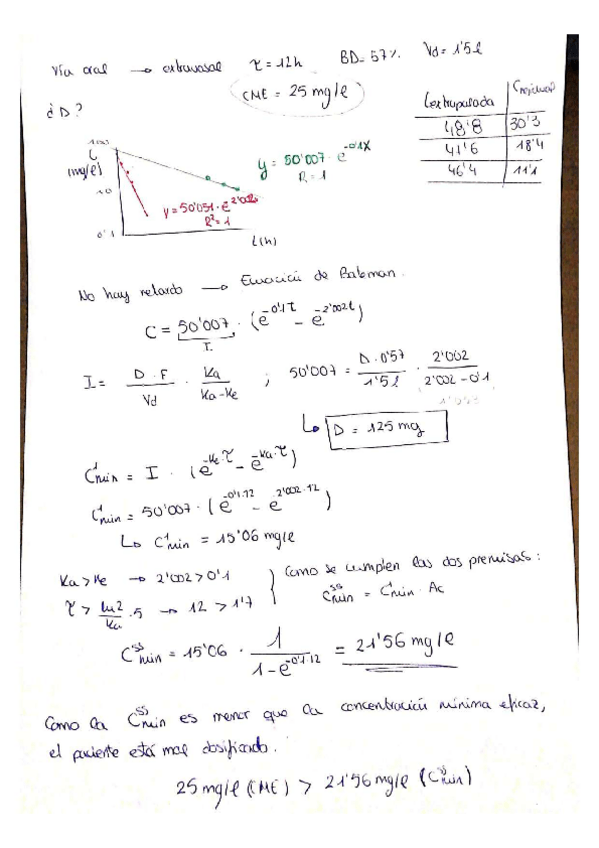 Vía oral → extravasal τ = 12h BD = 57% Vd = 1'5l
CME = 25 mg/l
¿D?
Cextrapolada Cresidual
48'8 30'3
41'6 18'4
46'4 11'1
100
C
(mg/l)
10
0'1
t(h)
y = 50'007 · e^-0'1x
R = 1
y = 50'051 · e^-2'002x
R² = 1
No hay retardo → Ecuación de Bateman.
C = 50'007 · (e^-0'1t - e^-2'002t)
I
I = D · F / Vd · Ka / Ka - Ke ; 50'007 = D · 0'57 / 1'5l · 2'002 / 2'002 - 0'1
↳ D = 125 mg
C¹min = I · (e^-Ke·τ - e^-Ka·τ)
C¹min = 50'007 · (e^-0'1·12 - e^-2'002·12)
↳ C¹min = 15'06 mg/l
Ka > Ke → 2'002 > 0'1
τ > ln2/Ka · 5 → 12 > 1'7
Como se cumplen las dos premisas:
C^ss min = C¹min · Ac
C^ss min = 15'06 · 1 / 1 - e^-0'1·12 = 21'56 mg/l
Como la C^ss min es menor que la concentración mínima eficaz,
el paciente está mal dosificado.
25 mg/l (CME) > 21'56 mg/l (C^ss min)